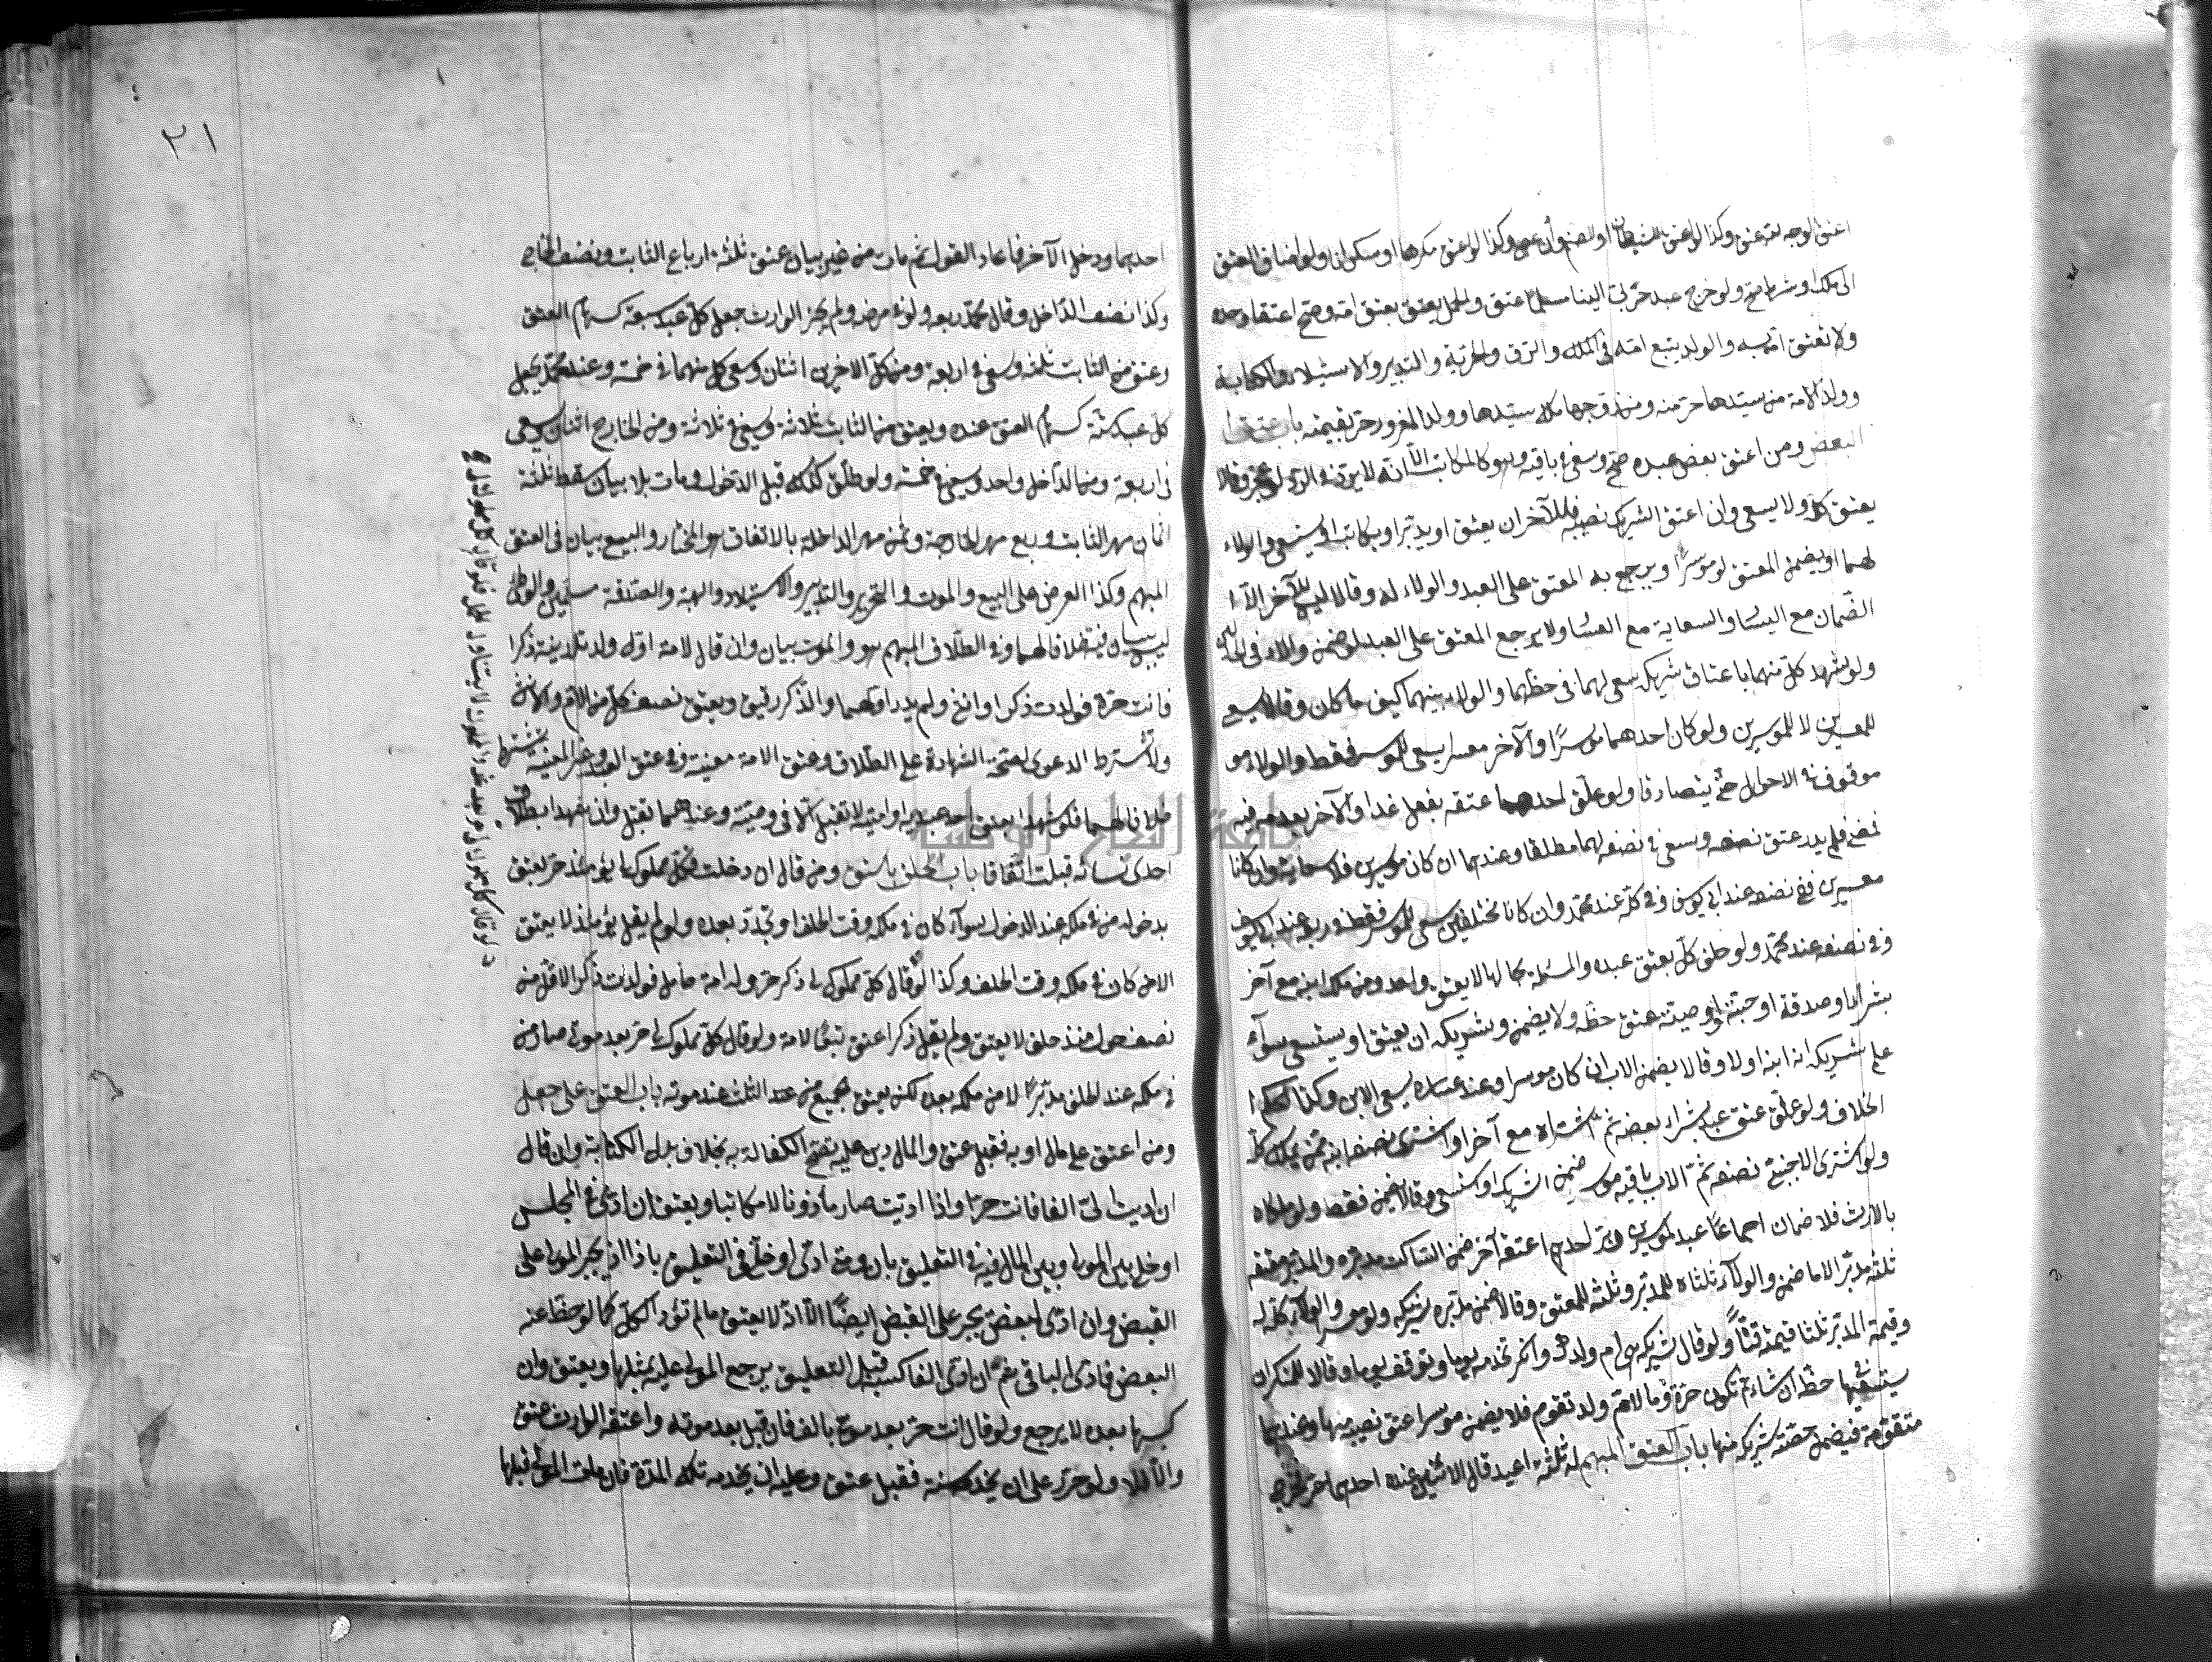 اعتق لوجه الله عتق وكذا لو اعتق للشيطان او للصنم وان عصى وكذا لو اعتق مكرها او سكران ولو اضاف العتق
الى ملك او شرط صح ولو خرج عبد حربى الينا مسلما عتق والحمل يعتق بعتق امه وصح اعتقاه وحده
ولا تعتق امه به والولد يتبع امه فى الملك والرق والحرية والتدبير والاستيلاد والكتابة
وولد الامة من سيدها حر منه ومن زوجها ملك سيدها وولد المغرور حر بقيمته باب عتق
البعض ومن اعتق بعض عبده صح وسعى فى باقيه وهو كالمكاتب الا انه لا يرد فى الرق لو عجز وقالا
يعتق كله ولا يسعى وان اعتق الشريك نصيبه فللآخر ان يعتق او يدبر او يكاتب او يستسعى والولاء
لهما او يضمن المعتق لو موسرا ويرجع به المعتق على العبد والولاء له وقالا ليس للآخر الا
الضمان مع اليسار والسعاية مع العسار ولا يرجع المعتق على العبد لو ضمن والولاء له فى الحالين
ولو شهد كل منهما باعتاق شريكه سعى لهما فى حظهما والولاء بينهما كيف ما كان وقالا يسعى
للمعسرين لا للموسرين ولو كان احدهما موسرا والآخر معسرا يسعى للموسر فقط والولاء مو
موقوف فى الاحوال حتى يتصادقا ولو علق احدهما عتقه بفعل غدا والآخر بعدمه فيه
فمضى فلم يدر عتق نصفه وسعى فى نصفه لهما مطلقا وعندهما ان كان موسرين فلا سعاية وان كانا
معسرين ففى نصفه عند ابى يوسف وفى كله عند محمد وان كانا مختلفين يسعى للموسر فقط فى ربعه عند ابى يوسف
وفى نصفه عند محمد ولو حلف كل بعتق عبده والمسئلة بحالها لا يعتق واحد ومن ملك ابنه مع آخر
بشراء او صدقة او هبة او وصية عتق حظه ولا يضمن ولشريكه ان يعتق او يستسعى سواء
علم شريكه انه ابنه اولا وقالا يضمن الاب ان كان موسرا وعند عساره يسعى الابن وكذا الحكم
الخلاف ولو علق عتق عبد بشراء بعضه ثم اشتراه مع آخر او اشترى نصف ابنه ممن يملك كله
ولو اشترى الاجنبى نصفه ثم الاب باقيه موسرا ضمن الشريك او استسعى وقالا يضمن فقط ولو ملكاه
بالارث فلا ضمان اجماعا عبد لموسرين دبره احدهم اعتقه آخر ضمن الساكت مدبره والمدبر معتقه
ثلثه مدبرا لا ما ضمن والولاء ثلثاه للمدبر وثلثه للمعتق وقالا ضمن مدبره لشريكه ولو معسرا والولاء كله له
وقيمة المدبر ثلثا قيمته قنا ولو قال لشريكه هى ام ولدك وانكر تخدمه يوما وتوقف يوما وقالا للمنكر ان
يستسعيها فى حظه ان شاء ثم تكون حرة وما لام ولد تقوم فلا يضمن موسرا عتق نصيبه منها وعندهما
متقومة فيضمن حصة شريكه منها باب العتق المبهم له ثلثة اعبد قال لاثنين عنده احدكما حر فخرج
٢٠١
احدهما ودخل الآخر فاعاد القول ثم مات من غير بيان عتق ثلثة ارباع الثابت ونصف الخارج
وكذا نصف الداخل وقال محمد ربعه ولو فى مرضه ولم يجز الوارث جعل كل عبد سبعة كسهام العتق
وعتق من الثابت ثلثة وسعى فى اربعة ومن كل الاخرين اثنان وسعى كل منهما فى خمسة وعند محمد يجعل
كل عبد ستة كسهام العتق عنده ويعتق من الثابت ثلاثة وسعى فى ثلاثة ومن الخارج اثنان ويسعى
فى اربعة ومن الداخل واحد وسعى فى خمسة ولو طلق كذلك قبل الدخول ومات بلا بيان سقط ثلثة
اثمان مهر الثابتة وربع مهر الخارجة وثمن مهر الداخلة بالاتفاق هو المختار والبيع بيان فى العتق
المبهم وكذا العرض على البيع والموت والتحرير والتدبير والاستيلاد والهبة والصدقة مسلمين والوطى
ليس ببيان فيه خلافا لهما وفى الطلاق المبهم هو والموت بيان وان قال لامة اول ولد تلدينه ذكرا
فانت حرة فولدت ذكرا وانثى ولم يدر اولهما والذكر رقيق ويعتق نصف كل من الام والانثى
ولا تشترط الدعوى لصحة الشهادة على الطلاق وعتق الامة معينة وفى عتق العبد وغير المعينة تشترط
خلافا لهما فلو شهدا بعتق احد عبديه او امتيه لا تقبل الا فى وصية وعندهما تقبل وان شهدا بطلاق
احدى نسائه قبلت اتفاقا باب الحلف بالعتق ومن قال ان دخلت فكل مملوك لى يومئذ حر يعتق
بدخوله من فى ملكه عند الدخول سواء كان فى ملكه وقت الحلف او تجدد بعده ولو لم يقل يومئذ لا يعتق
الا من كان فى ملكه وقت الحلف وكذا لو قال كل مملوك لى ذكر حر وله امة حامل فولدت ذكرا لاقل من
نصف حول منذ حلف لا يعتق ولو لم يقل ذكرا عتق تبعا لامه ولو قال كل مملوك لى حر بعد موتى صار من
فى ملكه عند الحلف مدبرا لا من ملكه بعده لكن يعتق الجميع من عند الثلث عند موته باب العتق على جعل
ومن اعتق على مال او به فقبل عتق والمال دين عليه تصح الكفالة به بخلاف بدل الكتابة وان قال
ان اديت الى الفا فانت حر او اذا اديت صار ماذونا لا مكاتبا ويعتق ان ادى فى المجلس
او خلى بين المولى وبين المال فيه فى التعليق بان ومتى ادى او خلى فى التعليق باذا اذ يجبر المولى على
القبض وان ادى البعض يجبر على القبض ايضا الا انه لا يعتق ما لم تؤد الكل كما لو حط عنه
البعض فادى الباقى ثم ان ادى الفا كسبها قبل التعليق يرجع المولى عليه بمثلها ويعتق وان
كسبها بعده لا يرجع ولو قال انت حر بعد موتى بالف فان قبل بعد موته واعتقه الوارث عتق
والا فلا ولو حرره على ان يخدمه سنة فقبل عتق وعليه ان يخدمه تلك المدة فان مات المولى قبلها
جامعة النجاح الوطنية